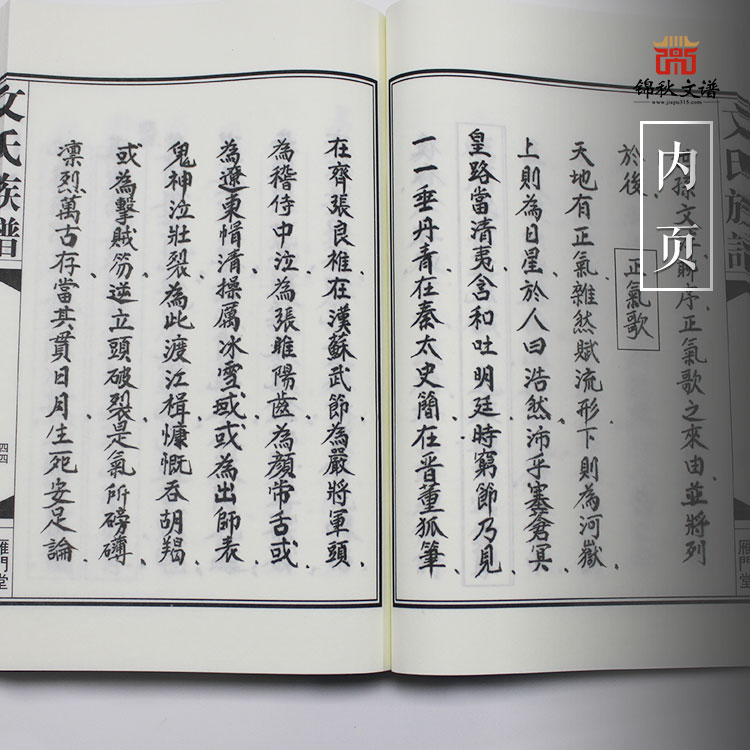 锦秋文谱
www.jiapu315.com
内页
文氏族譜
雁門堂
序正氣歌之來由並將列
於後
正氣歌
天地有正氣雜然賦流形下則為河嶽
上則為日星於人曰浩然沛乎塞蒼冥
皇路當清夷含和吐明廷時窮節乃見
一一垂丹青在秦太史簡在晉董狐筆
在齊張良椎在漢蘇武節為嚴將軍頭
為稽侍中泣為張睢陽齒為顏常舌或
為遼東帽清操厲冰雪或或為出師表
鬼神泣壯裂為此渡江楫慷慨吞胡羯
或為擊賊笏逆立頭破裂是氣所磅礴
凛烈萬古存當其貫日月生死安足論
文氏族譜
四四
雁門堂